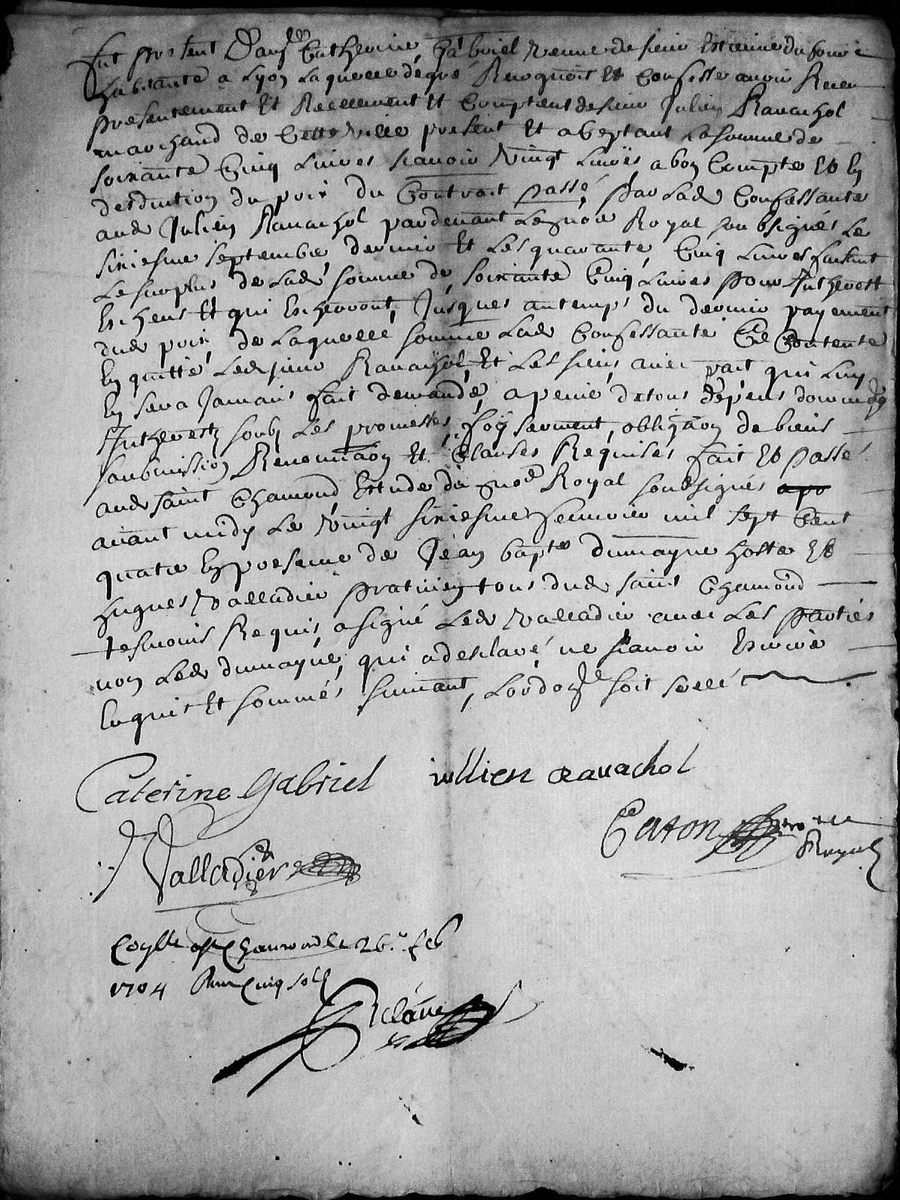 Fut present Dans Catherine Gabriel veuve de sieur Estienne
habitante a Lyon laquelle degré Recognoit Et Confesse avoir Receu
presentement Et Reellement Et Comptent de sieur Julien Ravachol
marchand de Cette ville present Et acceptant La somme de
soixante Cinq Livres scavoir Vingt Livres a bon Compte Et En
desduction du prix du Contrait passé, par lade Confessante
aud Julien Ravachol pardevant Le gnore Royal soubsignés Le
sixiesme septembre dernier Et Les quarante Cinq Livres faisant
Le surplus de Lade somme de soixante Cinq Livres pour Intherest
Escheus Et qui Escherront Jusques au temps du dernier payement
dud prix, de Laquelle somme Lade Confessante Contente
En quitte Led sieur Ravachol Et Les siens avec pait qui Luy
En sera Jamais fait demande, a peine de tous depens dommage
Intherests soubs Les promesses, foy serment, obligaon de biens
soubmission Renonciaon Et Clauses Requises fait Et passé
aud saint Chamond Estude du gnore Royal soubsignés
avant midy Le Vingt sixiesme febvrier mil sept Cent
quatre En presence de Jean bapte dumayne hoste Et
hugues Valladier praticien tous dud saint Chamond
tesmoins Requis, a signé Led Valladier avec Les parties
non Led dumayne, qui a desclaré ne scavoir Escrire
Enquis Et sommés suivant, Lordonce soit sellé
Caterine Gabriel jullien ravachol
Caron nore
Royal
Valladier
Coylle a st Chaumond le 26e feb
1704 Receu Cinq solz